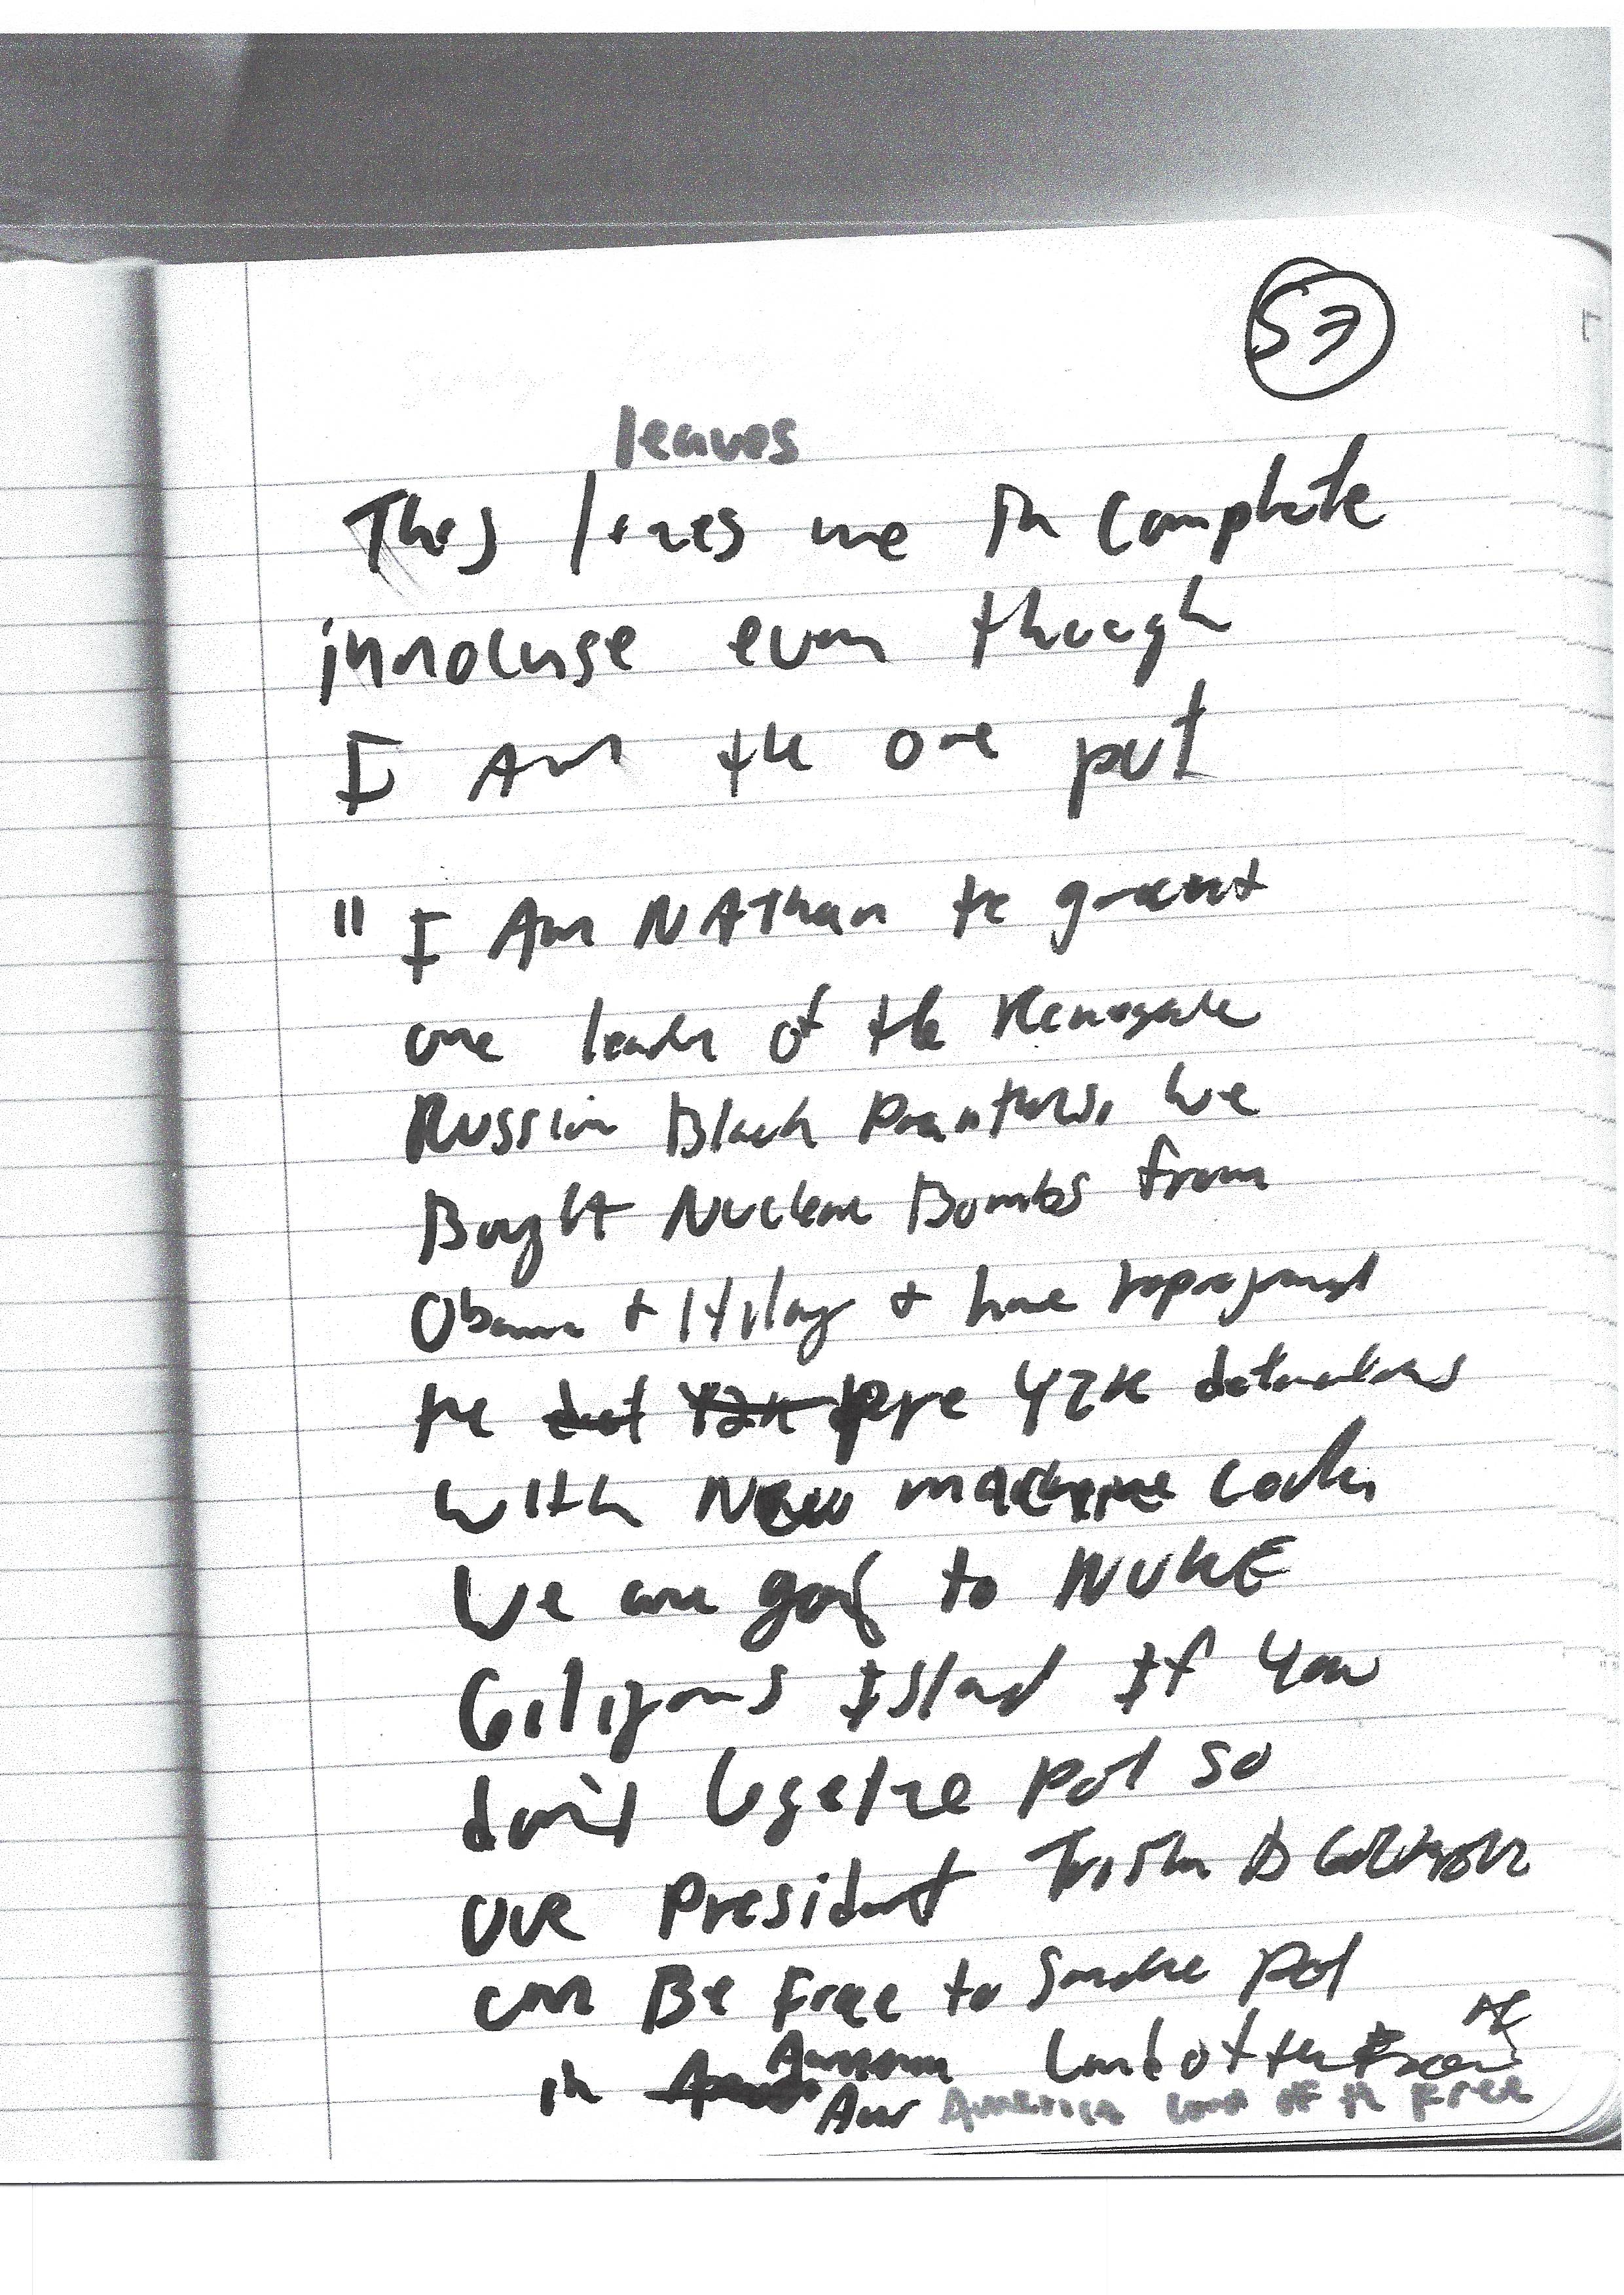 57
leaves
This leaves me in complete
innocense even though
I Am the one put
" I Am NAThan the great
one leader of the Renegade
Russian Black Panthers, we
Bought Nuclear Bombs from
Obama + Hilary + have reprogramed
the Pre Y2K detonators
with New machine codes
We are going to NUKE
Giligans Island If you
don't legalize pot so
our President Trisha
can Be Free to Smoke pot
in America Land of the
America Land of the Free